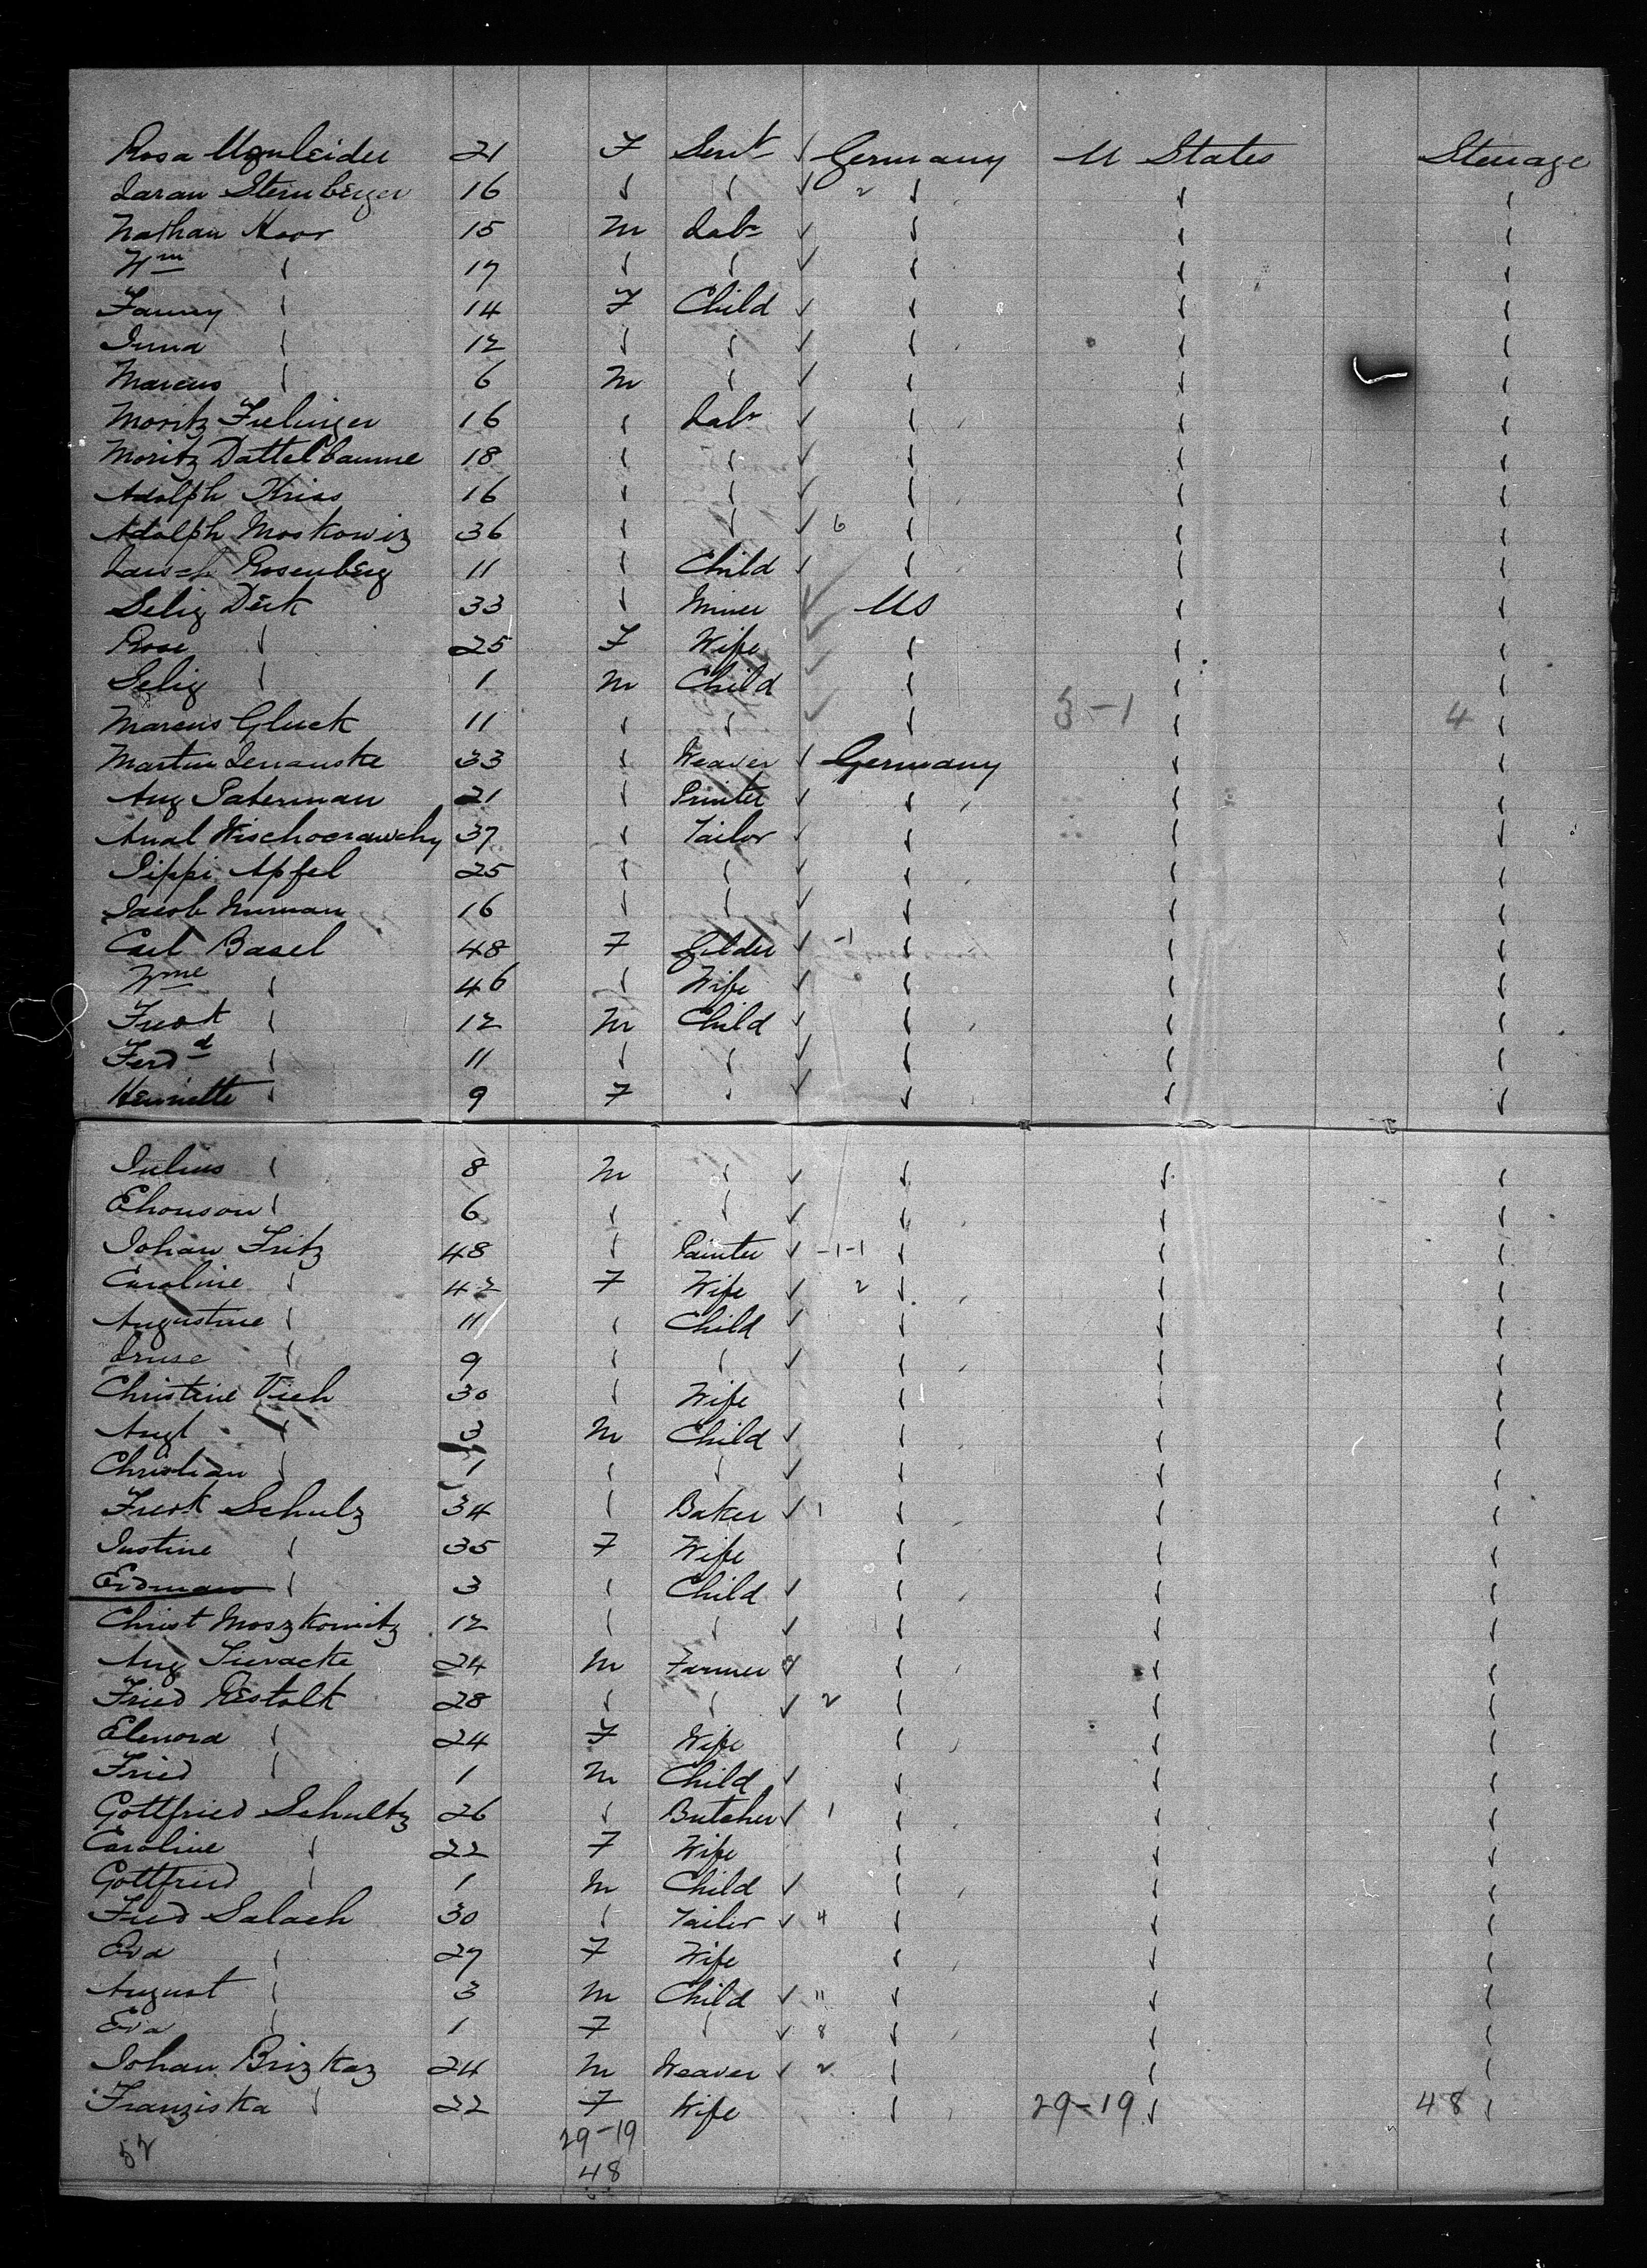 Rosa 21 F Servt ✓ Germany U States Steerage
Saran Sternberger 16 " " ✓ 2 " " "
Nathan Koor 15 M Labr ✓ " " "
Wm " 17 " " ✓ " " "
Fanny " 14 F Child ✓ " " "
" 12 " " ✓ " " "
Marcus " 6 M " ✓ " " "
Moritz Frelinger 16 " Labr ✓ " " "
Moritz Dattelbaume 18 " " ✓ " " "
Adolph Kriss 16 " " ✓ " " "
Adolph Moskowiz 36 " " ✓ 6 " " "
Rosenberg 11 " Child ✓ " " "
Selig Derk 33 " Miner ✓ US " "
Rose " 25 F Wife ✓ " " "
Selig " 1 M Child ✓ " " "
Marcus Gluck 11 " " ✓ " 3-1 " 4 "
Martin 33 " Weaver ✓ Germany " "
Aug Paterman 21 " Printer ✓ " " "
37 " Tailor ✓ " " "
Pippi Apfel 25 " " ✓ " " "
Jacob Numan 16 " " ✓ " " "
Carl Basel 48 F Gilder ✓ -1 " " "
Wme " 46 " Wife ✓ " " "
" 12 M Child ✓ " " "
Ferdd " 11 " " ✓ " " "
Henriette " 9 F " ✓ " " "
Julius " 8 M " ✓ " " "
" 6 " " ✓ " " "
Johan Fritz 48 " Painter ✓ -1-1 " " "
Caroline " 42 F Wife ✓ 2 " " "
Augustine " 11 " Child ✓ " " "
" 9 " " ✓ " " "
Christine Vieh 30 " Wife " " "
Augt " 3 M Child ✓ " " "
Christian " 1 " " ✓ " " "
Schulz 34 " Baker ✓ 1 " " "
Justine " 35 F Wife " " "
Erdman " 3 " Child ✓ " " "
Christ Moszkowitz 12 " " ✓ " " "
Aug 24 M Farmer ✓ " " "
Fried Restolk 28 " " ✓ 2 " " "
Elenora " 24 F Wife " " "
Fried " 1 M Child ✓ " " "
Gottfried Schultz 26 " Butcher ✓ 1 " " "
Caroline " 22 F Wife " " "
Gottfried " 1 M Child ✓ " " "
Fred Salach 30 " Tailor ✓ 4 " " "
Eva " 27 F Wife " " "
August " 3 M Child ✓ 11 " " "
Eva " 1 F " ✓ 8 " " "
Johan Brizkaz 24 M Weaver ✓ 2 " " "
Franziska " 22 F Wife " 29-19 " 48 "
52 29-19
48